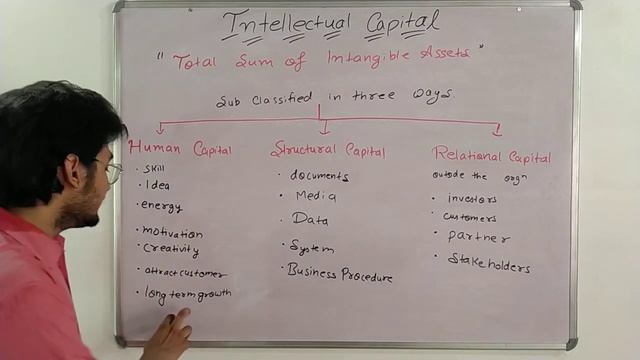 Intellectual Capital
"Total Sum of Intangible Assets"
Sub classified in three ways.
Human Capital
• skill
• Idea
• energy
• motivation
• creativity
• attract customer
• long term growth
Structural Capital
• documents
• Media
• Data
• System
• Business Procedure
Relational Capital
outside the orgⁿ
• investors
• customers
• partner
• Stakeholders